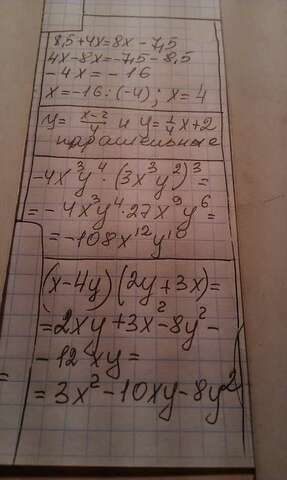 8,5+4x=8x-7,5
4x-8x=-7,5-8,5
-4x=-16
x=-16:(-4); x=4
y=\frac{x-2}{4} и y=\frac{1}{4}x+2
параллельные
-4x³y⁴·(3x³y²)³=
=-4x³y⁴·27x⁹y⁶=
=-108x¹²y¹⁰
(x-4y)(2y+3x)=
=2xy+3x²-8y²-
-12xy=
=3x²-10xy-8y²
=